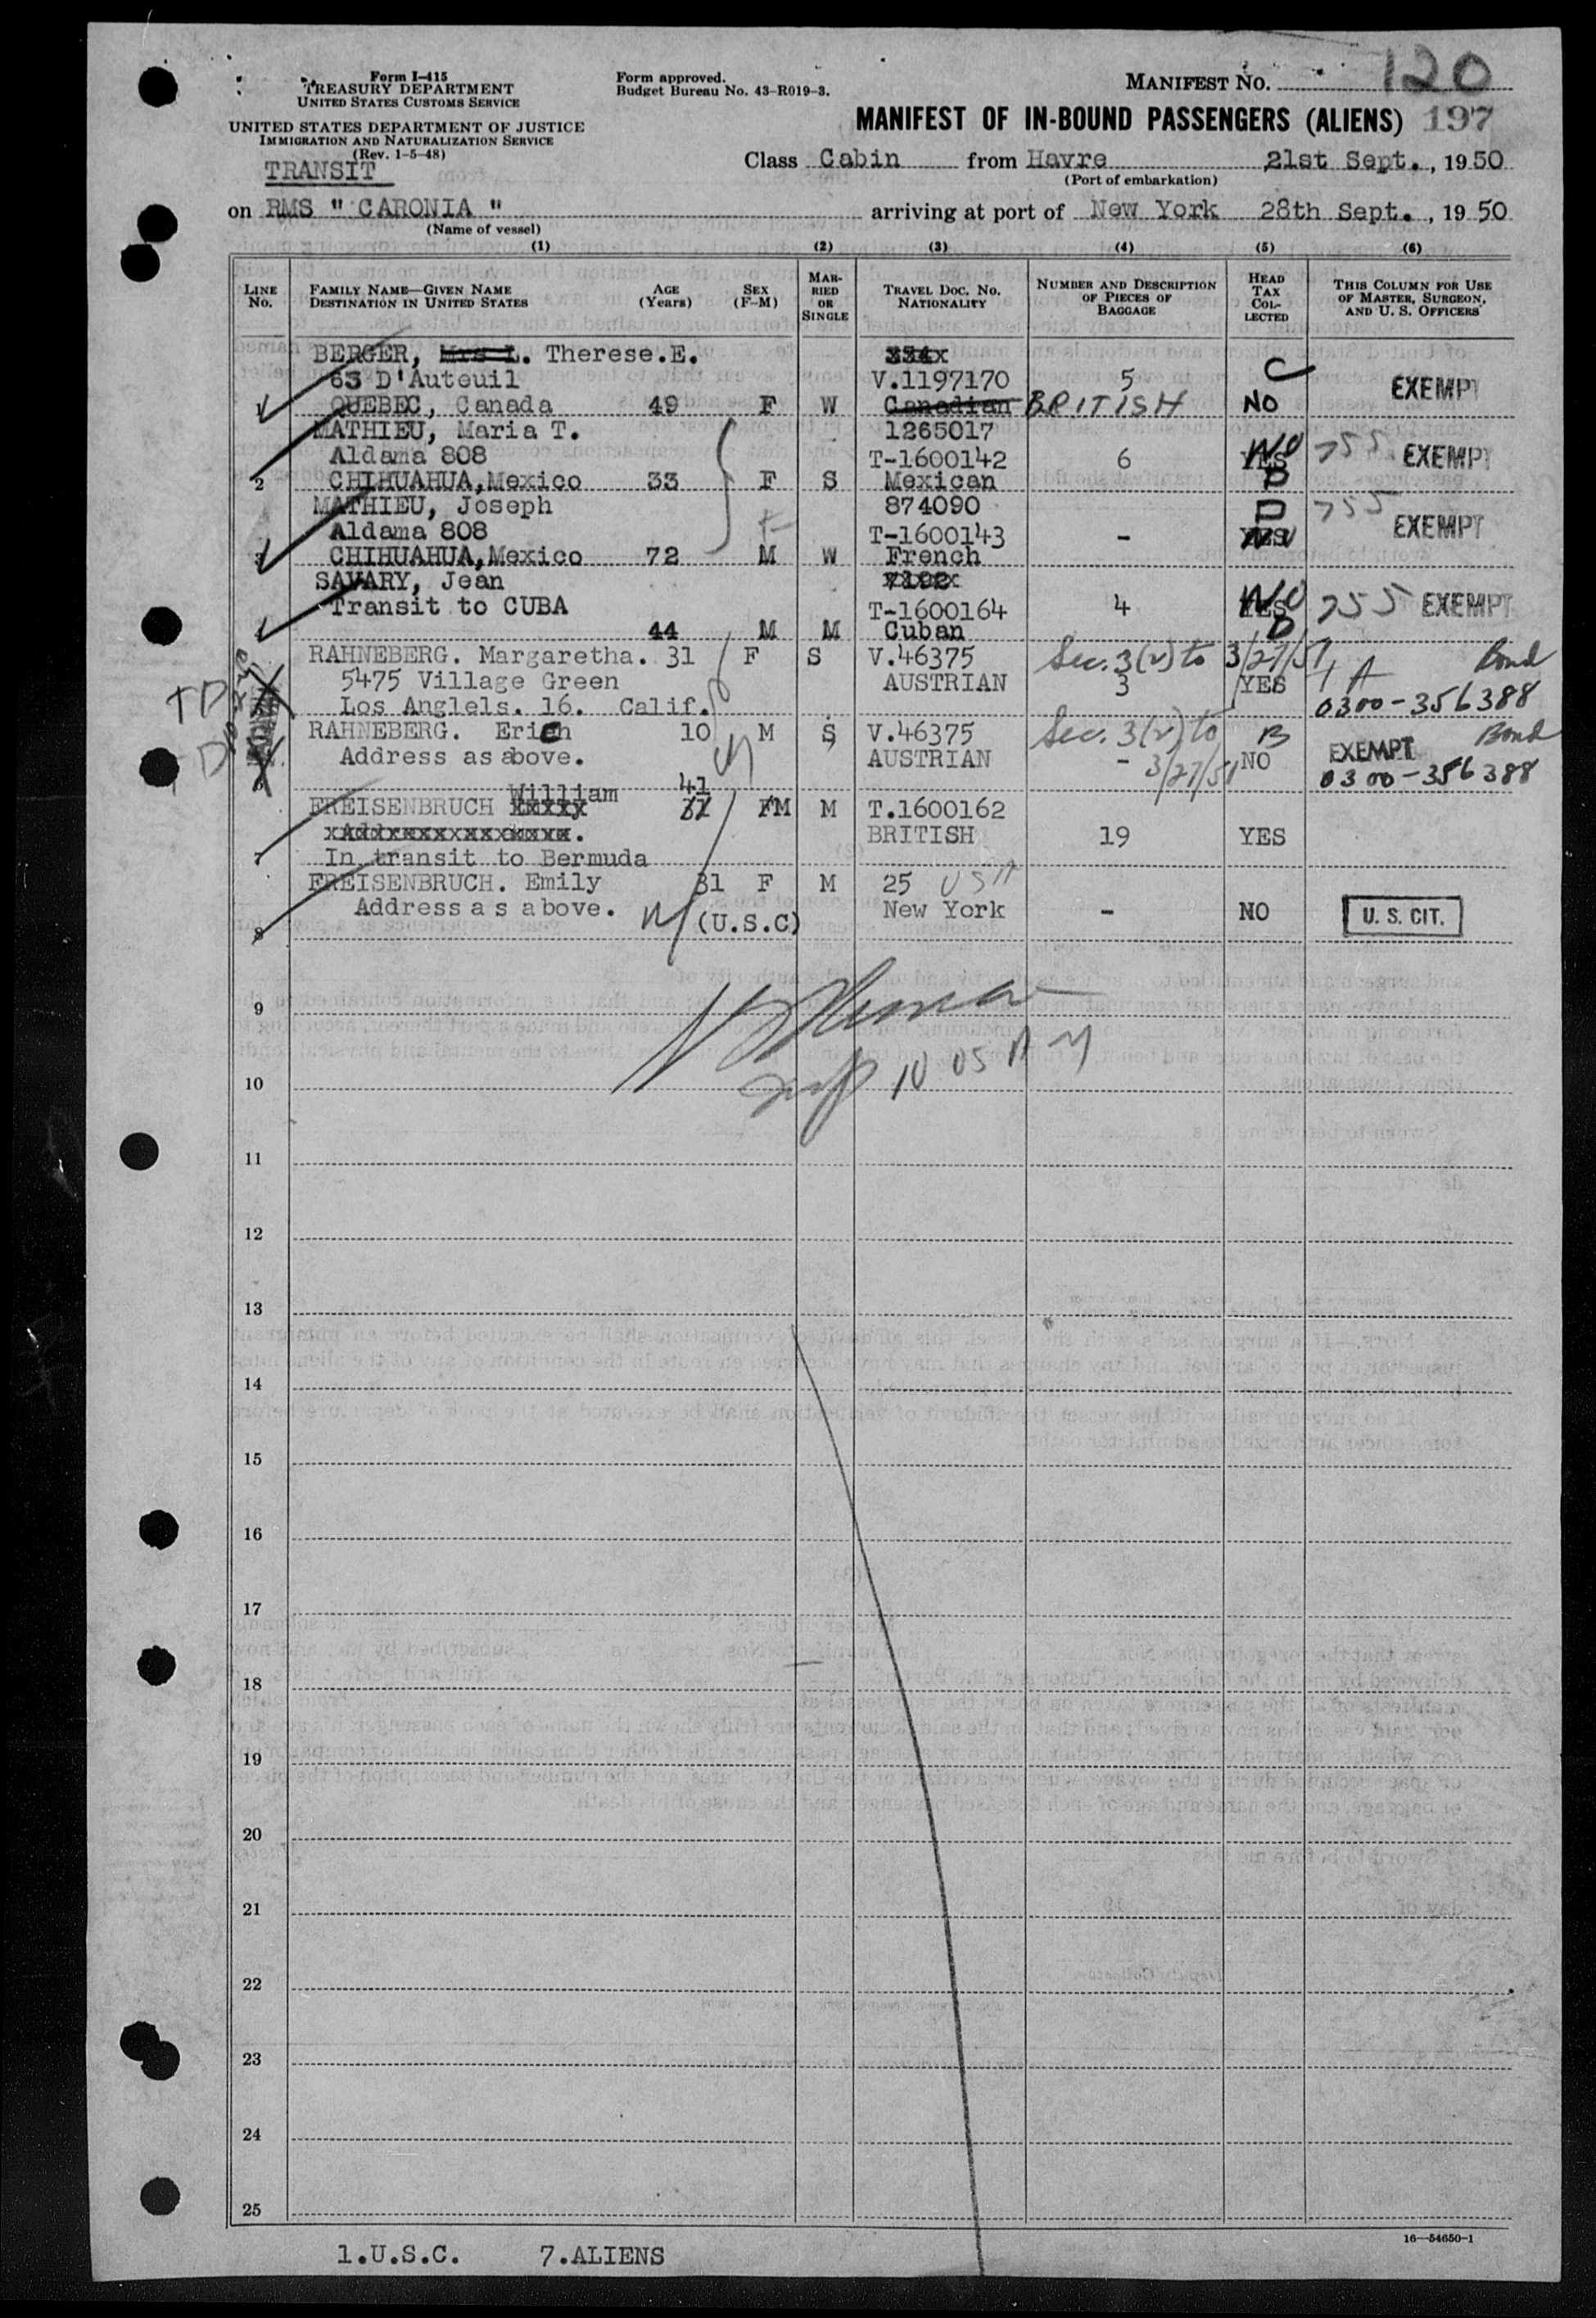 Form I-415
TREASURY DEPARTMENT
UNITED STATES CUSTOMS SERVICE
UNITED STATES DEPARTMENT OF JUSTICE
IMMIGRATION AND NATURALIZATION SERVICE
(Rev. 1-5-48)
TRANSIT
Form approved.
Budget Bureau No. 43-R019-3.
MANIFEST NO. 120
MANIFEST OF IN-BOUND PASSENGERS (ALIENS) 197
Class Cabin from Havre 21st Sept., 1950
(Port of embarkation)
on RMS " CARONIA " arriving at port of New York 28th Sept., 1950
(Name of vessel)
(1) (2) (3) (4) (5) (6)
LINE No. FAMILY NAME—GIVEN NAME DESTINATION IN UNITED STATES AGE (Years) SEX (F-M) MARRIED OR SINGLE TRAVEL DOC. NO. NATIONALITY NUMBER AND DESCRIPTION OF PIECES OF BAGGAGE HEAD TAX COLLECTED THIS COLUMN FOR USE OF MASTER, SURGEON, AND U. S. OFFICERS
BERGER, Mrs L. Therese.E.
63 D'Auteuil V.1197170 5 C EXEMPT
1 QUEBEC, Canada 49 F W Canadian BRITISH NO
MATHIEU, Maria T. 1265017
Aldama 808 T-1600142 6 NO YES 755 EXEMPT
2 CHIHUAHUA, Mexico 33 F S Mexican D
MATHIEU, Joseph 874090 D 755
Aldama 808 T-1600143 - YES EXEMPT
3 CHIHUAHUA, Mexico 72 M W French
SAVARY, Jean
Transit to CUBA T-1600164 4 NO YES 755 EXEMPT
4 44 M M Cuban D
RAHNEBERG. Margaretha. 31 F S V.46375 Sec. 3(2) to 3/27/51 Bond
5475 Village Green AUSTRIAN 3 YES A
Los Anglels. 16. Calif. 0300-356388
RAHNEBERG. Erich 10 M S V.46375 Sec. 3(2) to B Bond
Address as above. AUSTRIAN - 3/27/51 NO EXEMPT
0300-356388
William 41
FREISENBRUCH FM M T.1600162
BRITISH 19 YES
7 In transit to Bermuda
FREISENBRUCH. Emily 31 F M 25 USA
Address a s above. (U.S.C) New York - NO U. S. CIT.
8
9
10 10 05 AM
11
12
13
14
15
16
17
18
19
20
21
22
23
24
25
16—54650-1
1.U.S.C. 7.ALIENS